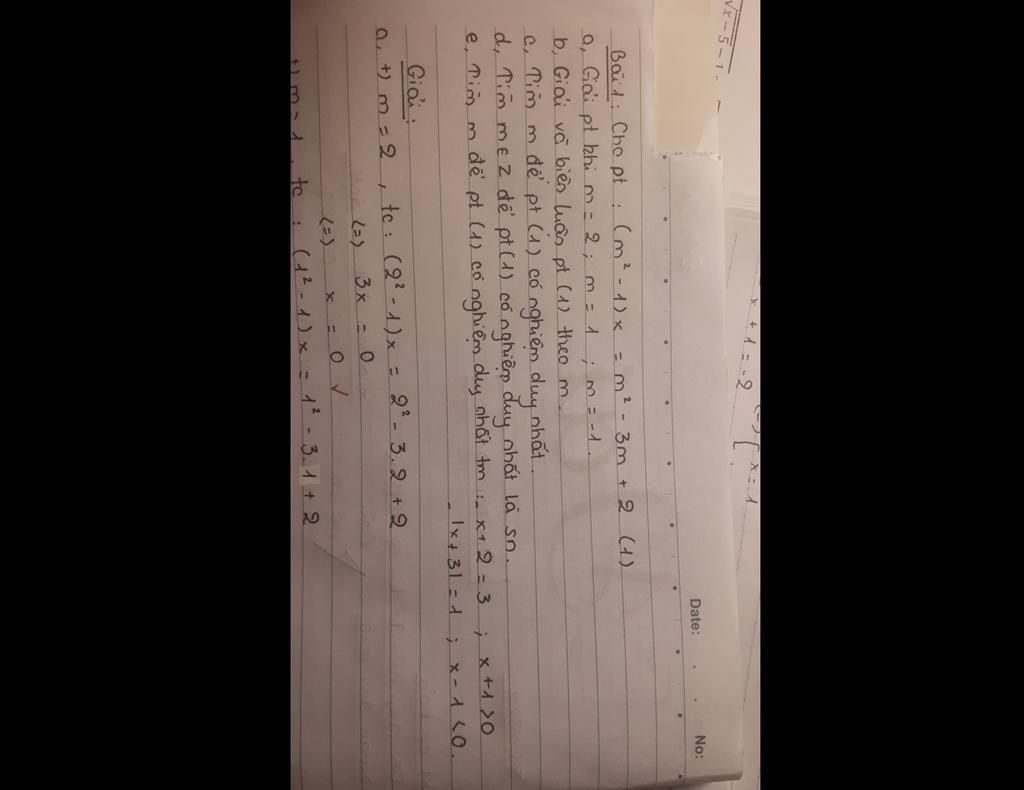 √x-5-1
x + 1 = -2
x = 1
Date: . . No:
Bài 1: Cho pt : (m² - 1)x = m² - 3m + 2 (1)
a, Giải pt khi m = 2 ; m = 1 ; m = -1.
b, Giải và biện luận pt (1) theo m.
c, Tìm m để pt (1) có nghiệm duy nhất.
d, Tìm m ∈ Z để pt (1) có nghiệm duy nhất là sn.
e, Tìm m để pt (1) có nghiệm duy nhất tm : - x + 2 = 3 ; x + 1 > 0
- |x + 3| = 1 ; x - 1 < 0.
Giải :
a, +) m = 2 , tc : (2² - 1)x = 2² - 3.2 + 2
(=) 3x = 0
(=) x = 0 ✓
+) m = 1 , tc : (1² - 1)x = 1² - 3.1 + 2